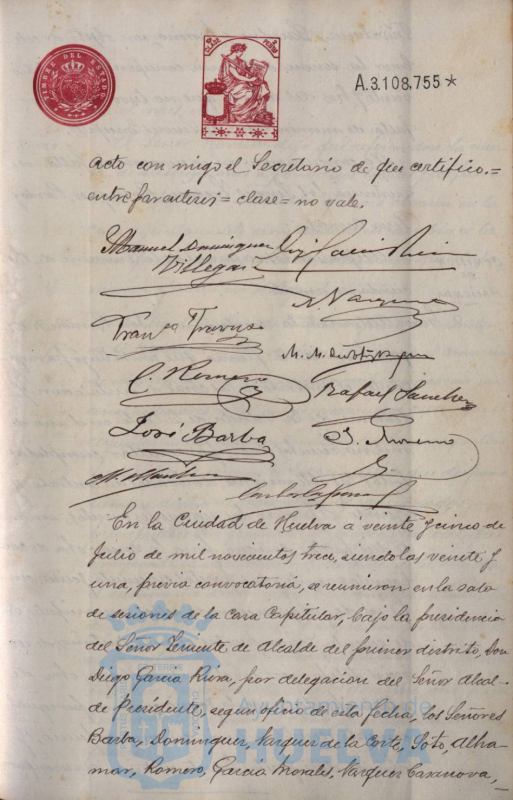 TIMBRE DEL ESTADO
CLASE
A.3.108,755*
acto con migo el Secretario de que certifico.=
entre parentesis = clase = no vale.
Manuel Dominguez
Villegas
Rafael Sanchez
C. Romero
José Barba
J. Moreno
En la Ciudad de Huelva á veinte y cinco de
Julio de mil novecientos trece, siendo las veinte y
una, previa convocatoria, se reunieron en la sala
de sesiones de la Casa Capitular, bajo la presidencia
del Señor Teniente de Alcalde del primer distrito, Don
Diego Garcia Riera, por delegacion del Señor Alcal-
de Presidente, segun oficio de esta fecha, los Señores
Barba, Dominguez, Vazquez de la Corte, Soto, Alha-
mar, Romero, Garcia Morales, Vazquez Casanova,
Ayuntamiento de
HUELVA